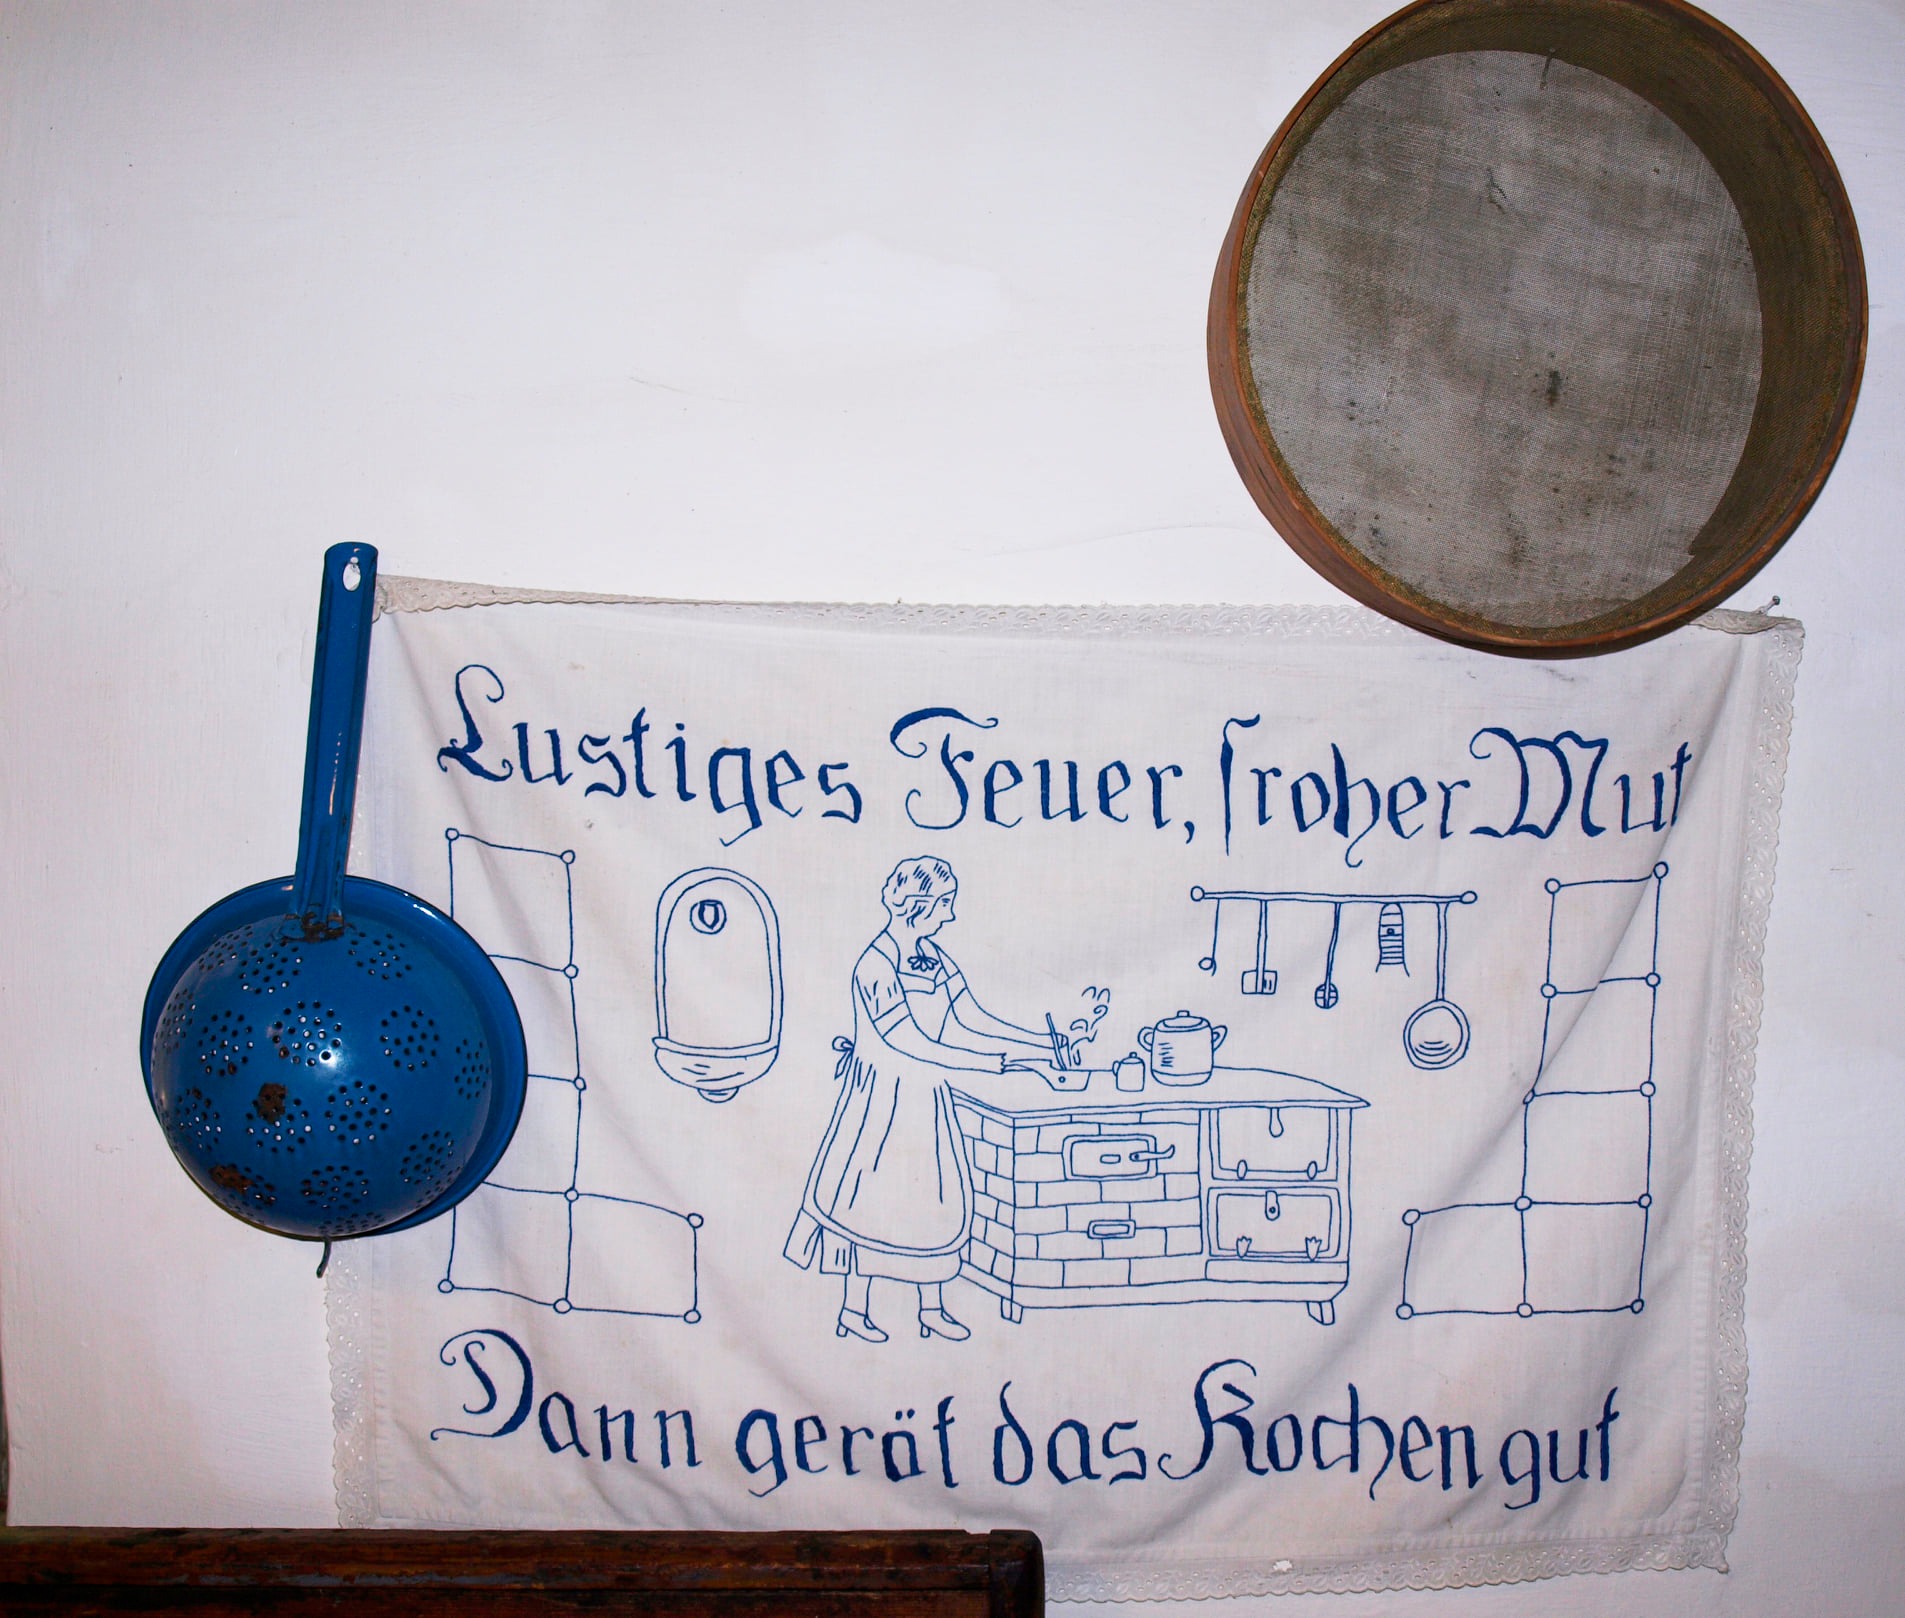 Lustiges Feuer, froher Mut
Dann gerät das Kochen gut